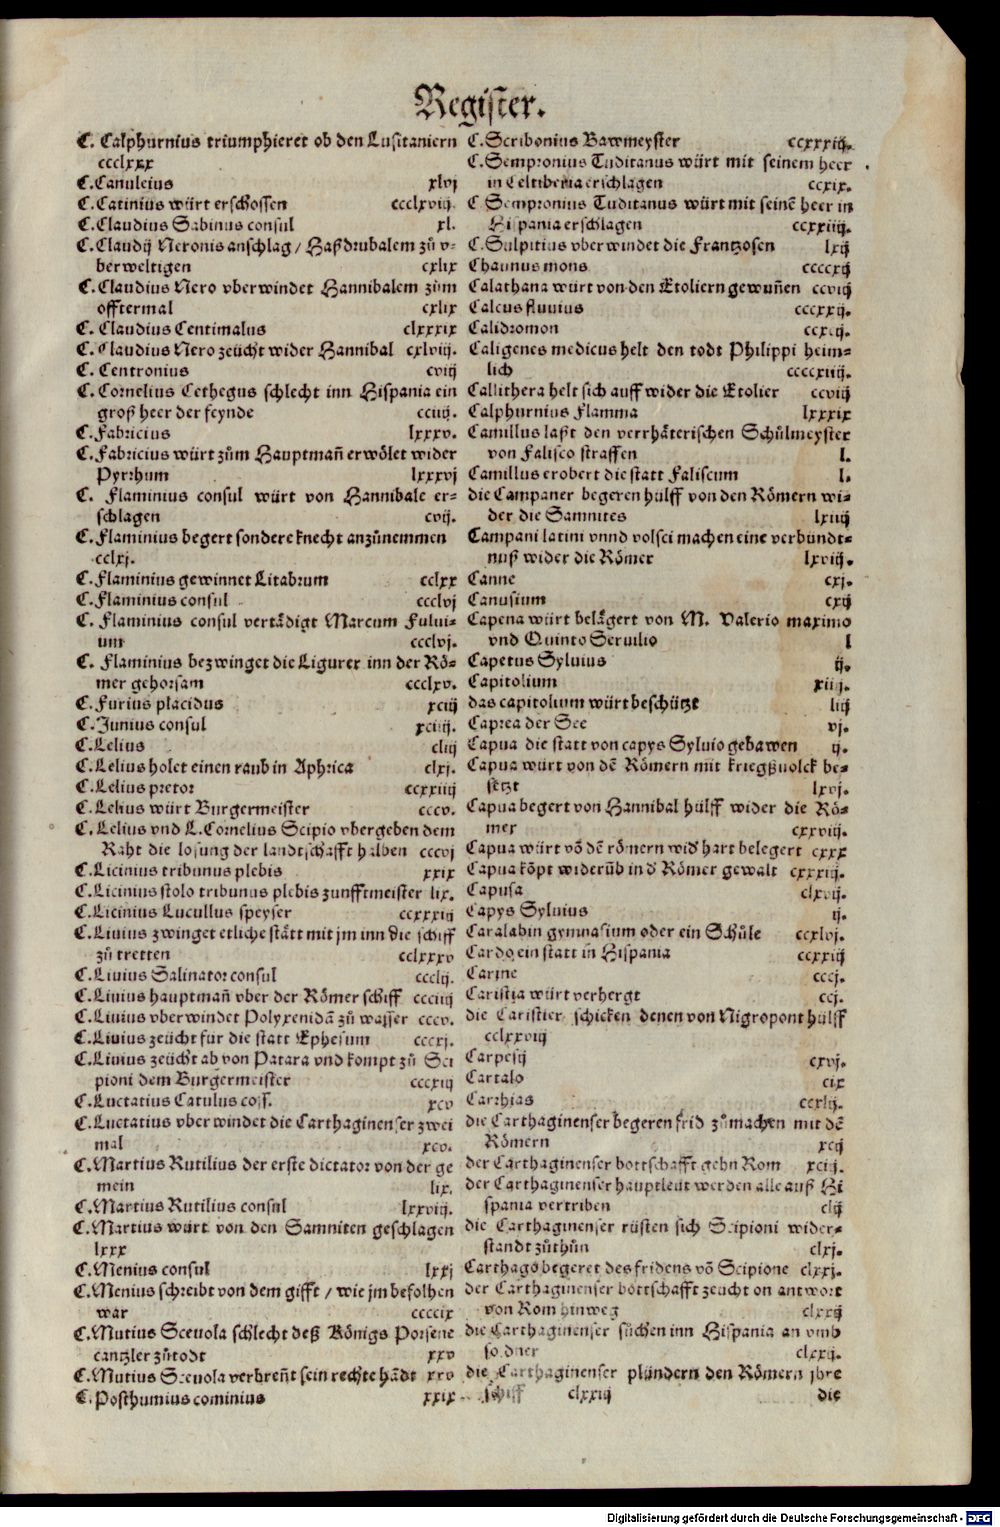 Register.
C. Calphurnius triumphieret ob den Lusitaniern
ccclxxx
C. Canuleius xlvj
C. Catinius würt erschossen ccclxviij.
C. Claudius Sabinus consul xl.
C. Claudij Neronis anschlag / Haßdrubalem zů v-
berweltigen cxlix
C. Claudius Nero vberwindet Hannibalem zům
offtermal cxlix
C. Claudius Centimalus clxxxix
C. Claudius Nero zeücht wider Hannibal cxlviij.
C. Centronius cviij
C. Cornelius Cethegus schlecht inn Hispania ein
groß heer der feynde cciiij.
C. Fabricius lxxxv.
C. Fabricius würt zům Hauptmañ erwölet wider
Pyrrhum lxxxvj
C. Flaminius consul würt von Hannibale er-
schlagen cvij.
C. Flaminius begert sondere knecht anzůnemmen
cclxj.
C. Flaminius gewinnet Litabrum cclxx
C. Flaminius consul ccclvj
C. Flaminius consul vertådigt Marcum Fului-
um ccclvj.
C. Flaminius bezwinget die Ligurer inn der Rö-
mer gehorsam ccclxv.
C. Furius placidus xciij
C. Junius consul xciiij.
C. Lelius cliij
C. Lelius holet einen raub in Aphrica clxj.
C. Lelius pretor ccxxiiij
C. Lelius würt Burgermeister cccv.
C. Lelius vnd L. Cornelius Scipio vbergeben dem
Raht die losung der landtschafft halben cccvj
C. Licinius tribunus plebis xxix
C. Licinius stolo tribunus plebis zunfftmeister lix.
C. Licinius Lucullus speyser ccxxxiij
C. Liuius zwinget etliche stått mit jm inn die schiff
zů tretten cclxxxv
C. Liuius Salinator consul ccclij.
C. Liuius hauptmañ vber der Römer schiff ccciiij
C. Liuius vberwindet Polyxenidã zů wasser cccv.
C. Liuius zeücht für die statt Ephesum cccxj.
C. Liuius zeücht ab von Patara vnd kompt zů Sci
pioni dem Burgermeister cccxiij
C. Luctatius Catulus coss. xcv
C. Luctatius vberwindet die Carthaginenser zwei
mal xcv.
C. Martius Rutilius der erste dictator von der ge
mein lix.
C. Martius Rutilius consul lxxviij.
C. Martius würt von den Samniten geschlagen
lxxx
C. Menius consul lxxj
C. Menius schreibt von dem gifft / wie jm befolhen
war ccccix
C. Mutius Sceuola schlecht deß Königs Porsene
cantzler zůtodt xxv
C. Mutius Sceuola verbreñt sein rechte hãdt xxv
C. Posthumius cominius xxix
C. Scribonius Bawmeyster ccxxxiij.
C. Sempronius Tuditanus würt mit seinem heer
in Celtiberia erschlagen ccxix.
C. Sempronius Tuditanus würt mit seinẽ heer in
Hispania erschlagen ccxxiiij.
C. Sulpitius vberwindet die Frantzosen lxij
Chaunus mons ccccxij
Calathana würt von den Etoliern gewuñen ccviij
Calcus fluuius cccxxij.
Calidromon
Caligenes medicus helt den todt Philippi heim-
lich ccccxiiij.
Callithera helt sich auff wider die Etolier ccviij
Calphurnius Flamma lxxxix
Camillus laßt den verrhåterischen Schůlmeyster
von Falisco straffen l.
Camillus erobert die statt Faliscum l.
die Campaner begeren hülff von den Römern wi-
der die Samnites lxiiij
Campani latini vnnd volsci machen eine verbündt-
nuß wider die Römer lxviij.
Canne cxj.
Canusium cxij
Capena würt belågert von M. Valerio maximo
vnd Quinto Seruilio l
Capetus Syluius ij.
Capitolium xiiij.
das capitolium würt beschützt liij
Caprea der See vj.
Capua die statt von capys Syluio gebawen ij.
Capua würt von dẽ Römern mit kriegßuolck be-
setzt lxvj.
Capua begert von Hannibal hülff wider die Rö-
mer cxxviij.
Capua würt võ dẽ römern wid' hart belegert cxxx
Capua kõpt widerũb in d' Römer gewalt cxxxiij.
Capusa clxvij.
Capys Syluius ij.
Caralabin gymnasium oder ein Schůle ccxlvj.
Cardo ein statt in Hispania ccxxiij
Carine cccj.
Caristia würt verhergt ccj.
die Caristier schicken denen von Nigropont hülff
cclxxviij
Carpesij cxvj.
Cartalo cix
Carthias ccxlij.
die Carthaginenser begeren frid zůmachen mit dẽ
Römern xcij
der Carthaginenser bottschafft gehn Rom xciij.
der Carthaginenser hauptleüt werden alle auß Hi
spania vertriben clij
die Carthaginenser rüsten sich Scipioni wider-
standt zůthůn clxj.
Carthago begeret des fridens võ Scipione clxxj.
der Carthaginenser bottschafft zeücht on antwort
von Rom hinweg clxxij
die Carthaginenser sůchen inn Hispania an vmb
soldner clxxij.
die Carthaginenser plündern den Römern jhre
schiff clxxiij die
Digitalisierung gefördert durch die Deutsche Forschungsgemeinschaft - DFG